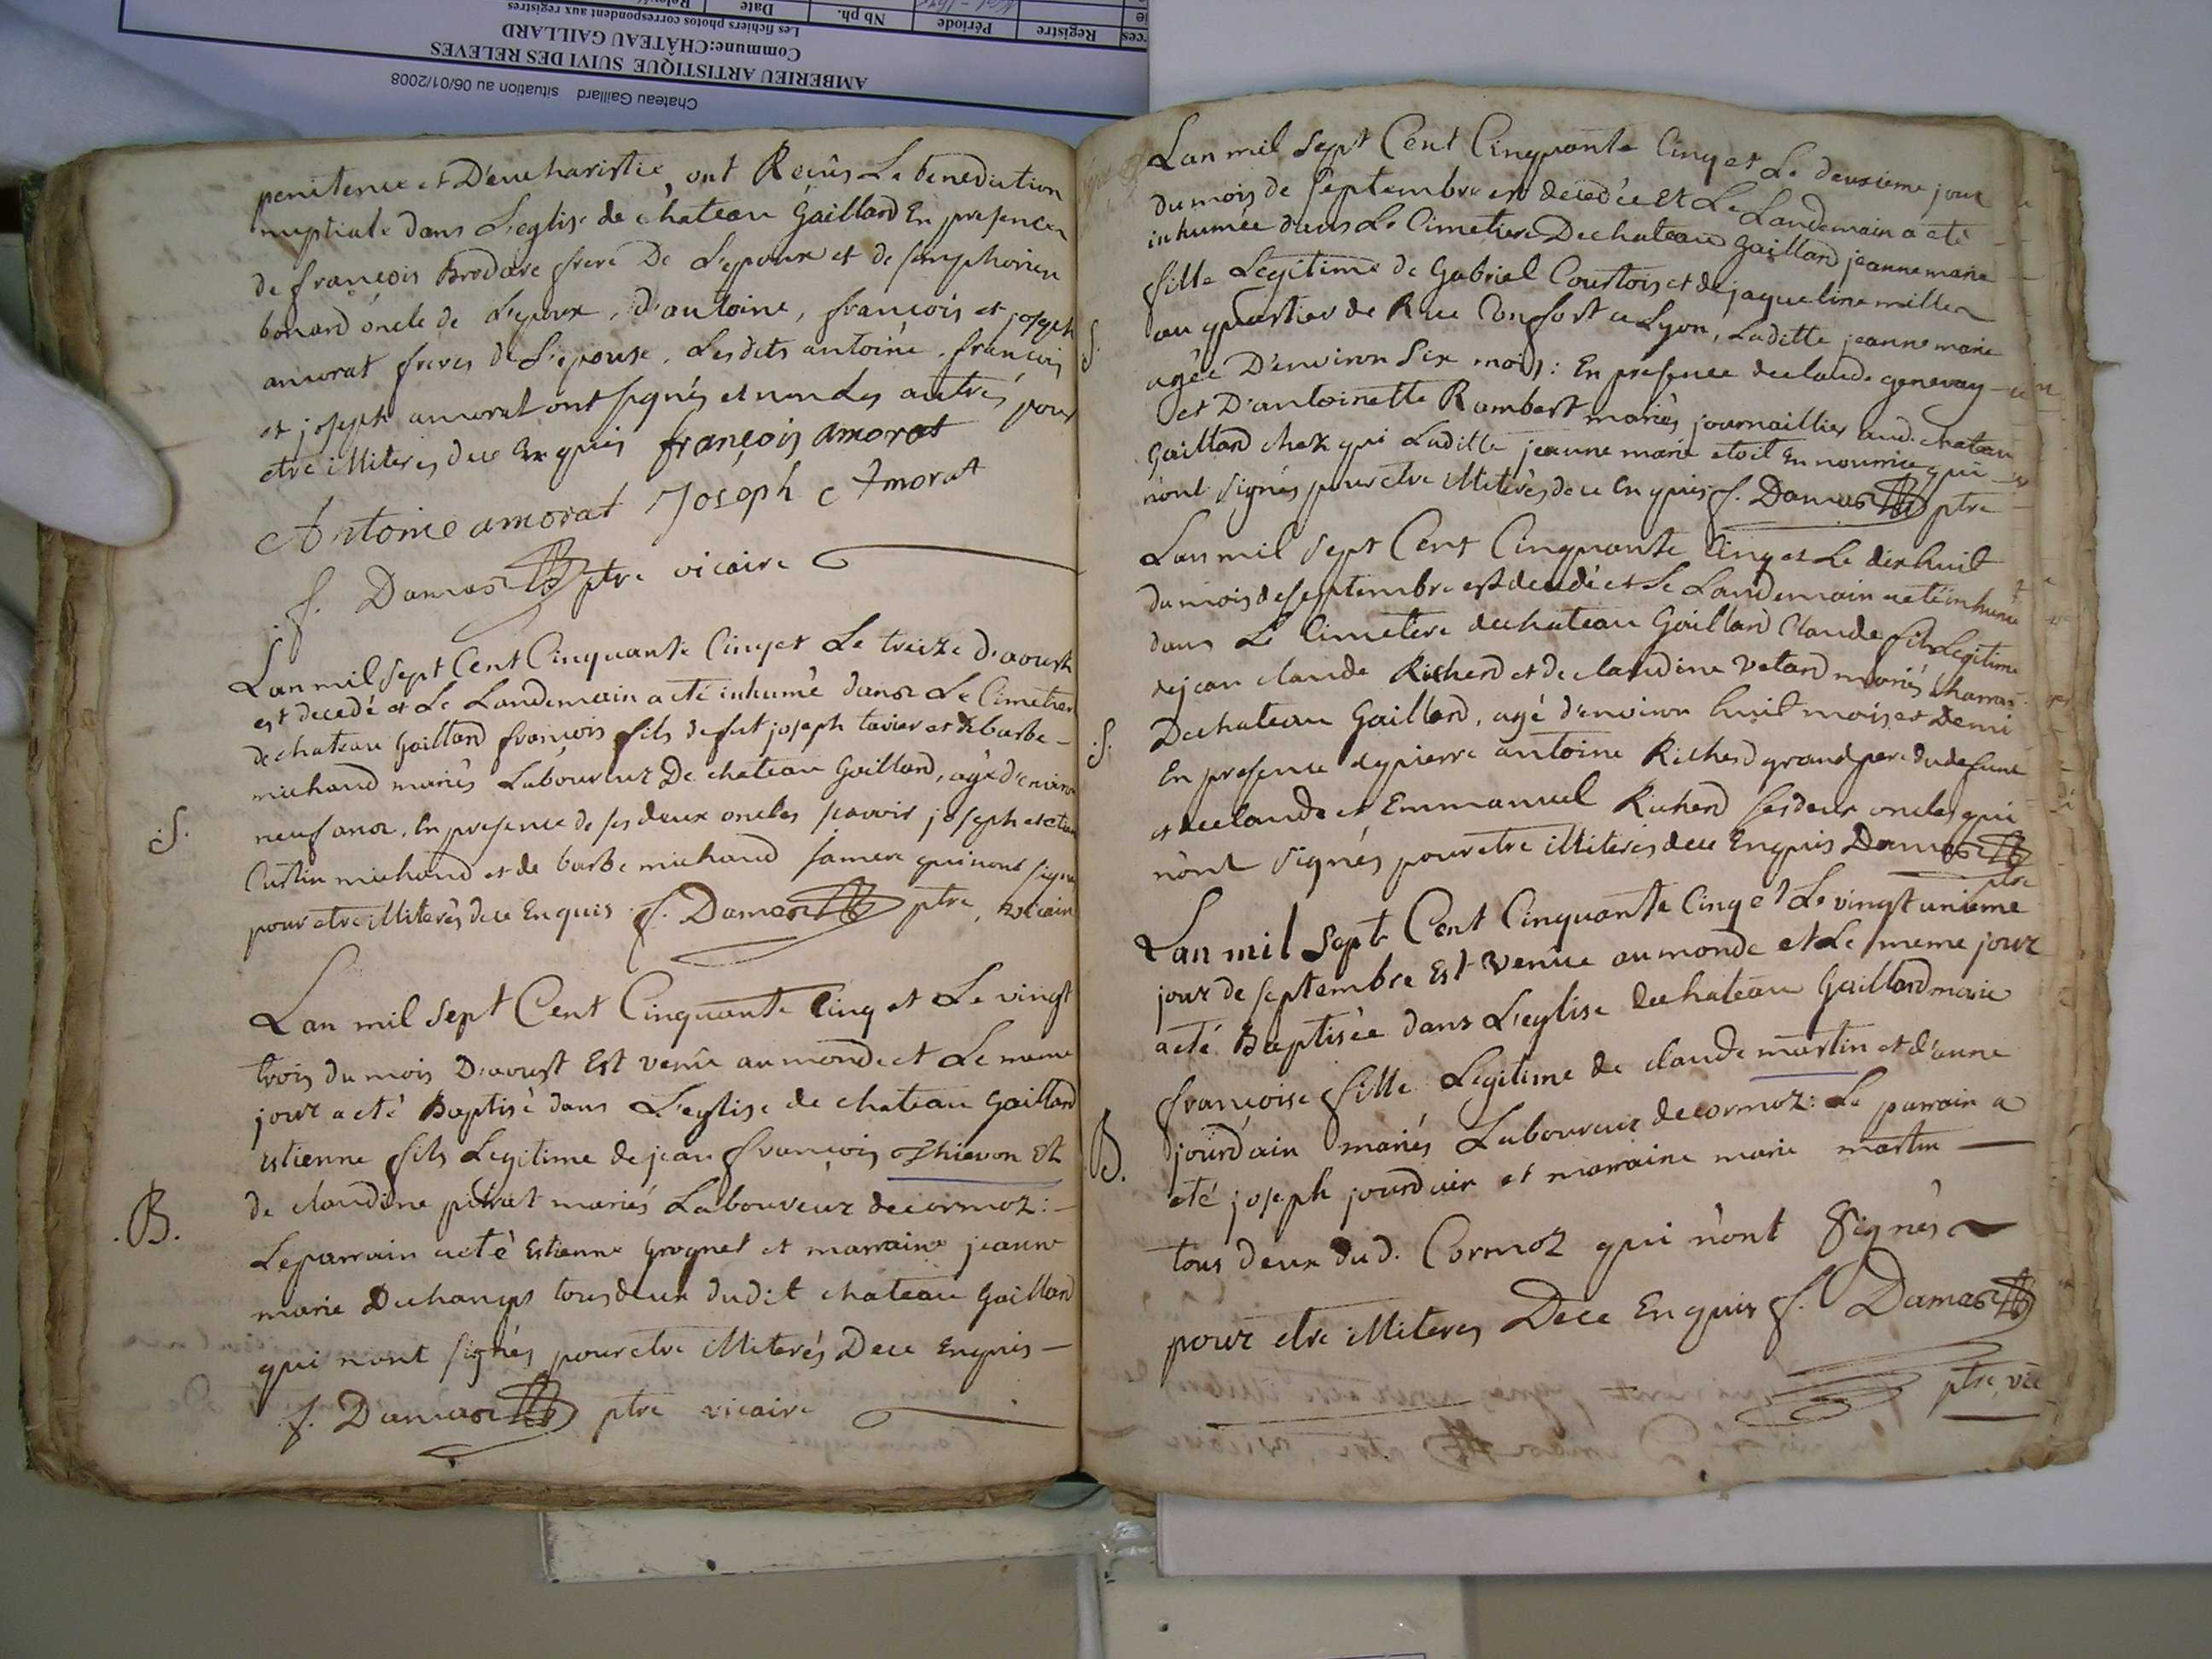 Chateau Gaillard situation au 06/01/2008
AMBERIEU ARTISTIQUE SUIVI DES RELEVES
Commune:CHÂTEAU GAILLARD
Les fichiers photos correspondent aux registres
Registre Période Nb ph. Date
penitence et D'eucharistie, ont Recûs La benediction
nuptiale dans L'eglise de chateau Gaillard En presence
de françois Brodave frere De L'epoux et de simphorien
bonard oncle de L'epoux, d'antoine, francois et joseph
amorat freres de L'epouse. Lesdits antoine, francois
et joseph amorat ont signés et non Les autres pour
etre illiterés de ce Enquis françois amorat
Antoine amorat Joseph Amorat
f. Damas ptre vicaire
Lan mil sept Cent Cinquante Cinq et Le treize d'aoust
est decedé et Le Landemain a eté inhumé dans Le Cimetier
de chateau Gaillard francois fils de fut joseph tavier et de barbe
michaud mariés Laboureur De chateau Gaillard, agé d'environ
neuf ans. En presence de ses deux oncles scavoir joseph et
michaud et de barbe michaud samere qui nont signés
pour etre illiterés de ce Enquis f. Damas ptre, vicaire
S.
Lan mil sept Cent Cinquante Cinq et Le vingt
trois du mois D'aoust Est venû au monde et Le meme
jour a eté Baptisé dans L'eglise de chateau Gaillard
estienne fils Legitime de jean françois Thievon Et
de claudine pitrat mariés Laboureur de cormoz:
B.
Le parrain a eté Estienne Grognet et marraine jeanne
marie Duchamps tous deux dudit chateau Gaillard
qui nont signés pour etre illiterés De ce Enquis
f. Damas ptre vicaire
Lan mil sept Cent Cinquante Cinq et Le deuxieme jour
du mois de septembre est decedée et Le Landemain a eté
inhumée dans Le Cimetiere De chateau Gaillard jeanne marie
fille Legitime de Gabriel Courtois et de jaqueline millier
S.
au quartier de Rue Confort a Lyon, Laditte jeanne marie
agée D'environ Six mois: En presence de claude genevay
et D'antoinette Rambert mariés journaillier aud. chateau
Gaillard chez qui Laditte jeanne marie etoit En nourrice qui
n'ont signés pour etre illiterés de ce Enquis f. Damas ptre
Lan mil sept Cent Cinquante Cinq et Le dix huit
du mois de septembre est decedé et Le Landemain a eté inhumé
dans Le Cimetiere de chateau Gaillard Claude fils Legitime
de jean claude Richerd et de claudine Vetard mariés
S.
De chateau Gaillard, agé d'environ huit mois et Demi
En presence de pierre antoine Richerd grand pere du defunt
et de claude et Emmanuel Richerd ses deux oncles qui
n'ont signés pour etre illiterés de ce Enquis Damas
ptre
Lan mil Sept Cent Cinquante Cinq et Le vingt unieme
jour de septembre Est Venûe au monde et Le meme jour
a eté Baptisée dans L'eglise de chateau Gaillard marie
françoise fille Legitime de claude martin et d'anne
B.
jourdain mariés Laboureur de cormoz: Le parrain a
eté joseph jourdain et marraine marie martin
tous deux dud. Cormoz qui n'ont Signés
pour etre illiterés De ce Enquis f. Damas
ptre, vic